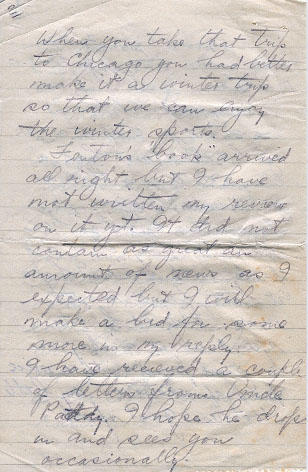 When you take that trip
to Chicago you had better
make it a winter trip
so that we can enjoy
the winter sports.
Fenton's "book" arrived
all right but I have
not written my review
on it yet. It did not
contain as great an
amount of news as I
expected but I will
make a bid for some
more in my reply.
I have recieved a couple
of letters from Uncle
Paddy. I hope he drops
in and sees you
occasionally